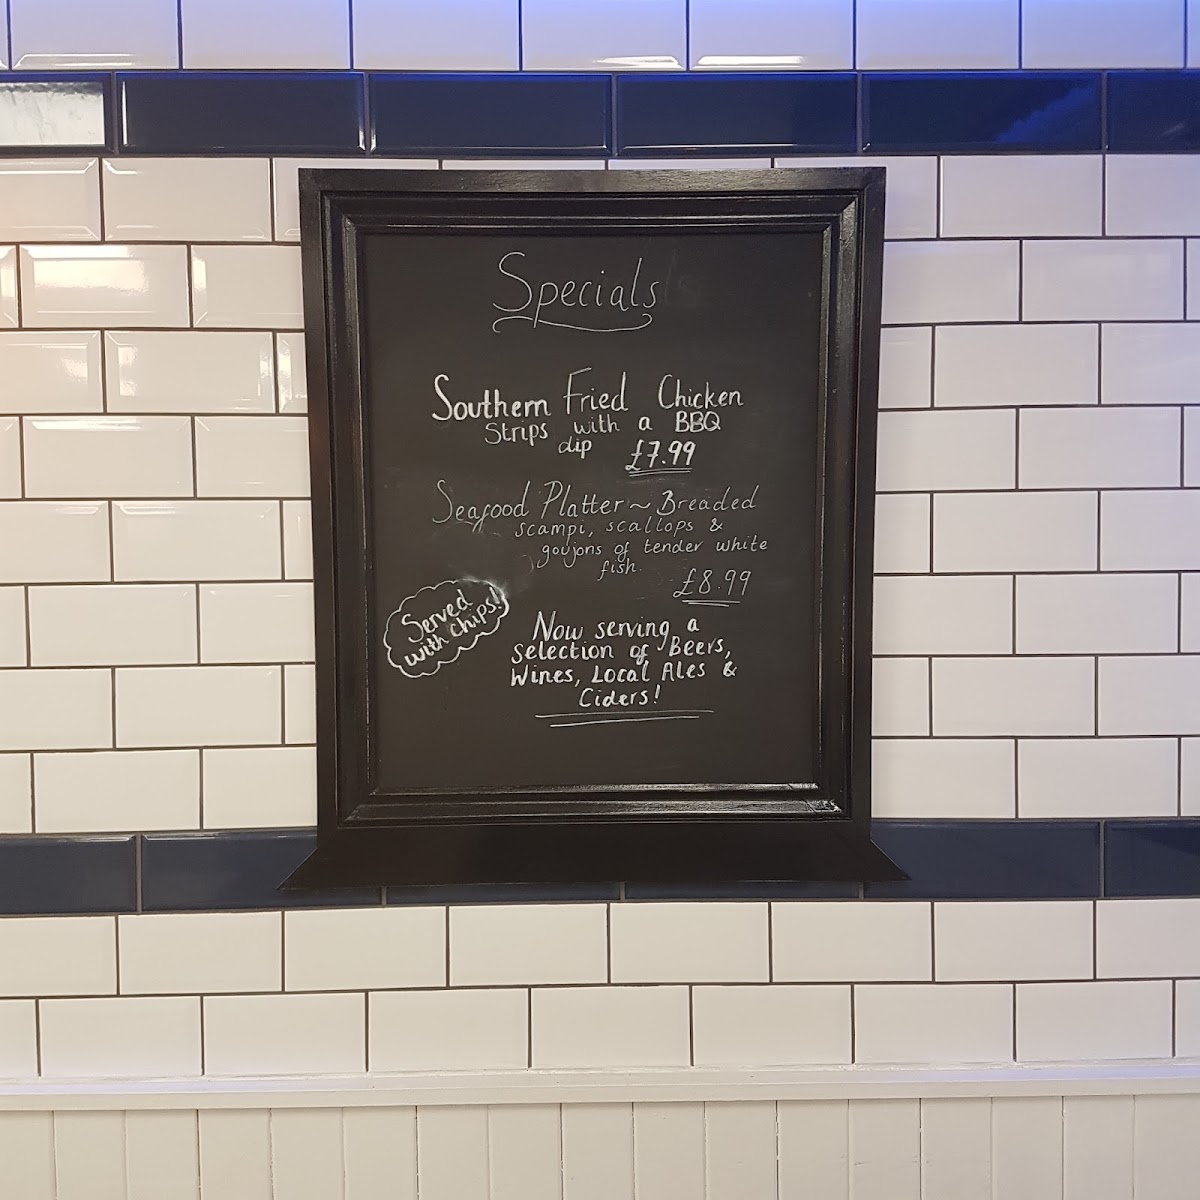 Specials
Southern Fried Chicken
Strips with a BBQ
dip £7.99
Seafood Platter ~ Breaded
scampi, scallops &
goujons of tender white
fish.
£8.99
Served
with chips!
Now serving a
selection of Beers,
Wines, Local Ales &
Ciders!